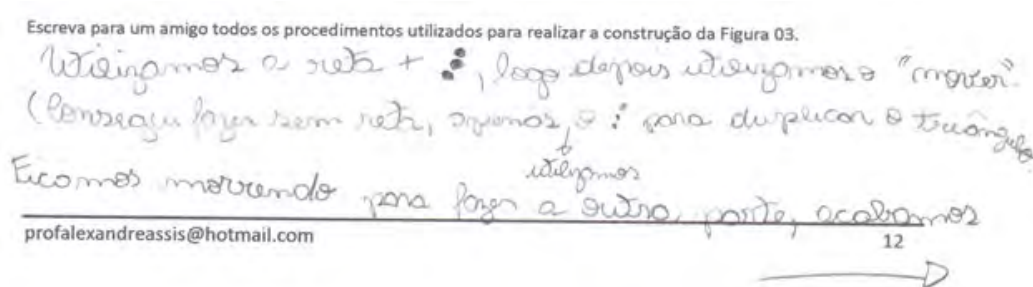 Escreva para um amigo todos os procedimentos utilizados para realizar a construção da Figura 03.
Utilizamos a reta + , logo depois utilizamos o "mover".
(Consegui fazer sem reta, apenas, o : para duplicar o triângulo.
utilizamos
Ficamos morrendo para fazer a outra parte, acabamos
profalexandreassis@hotmail.com
12